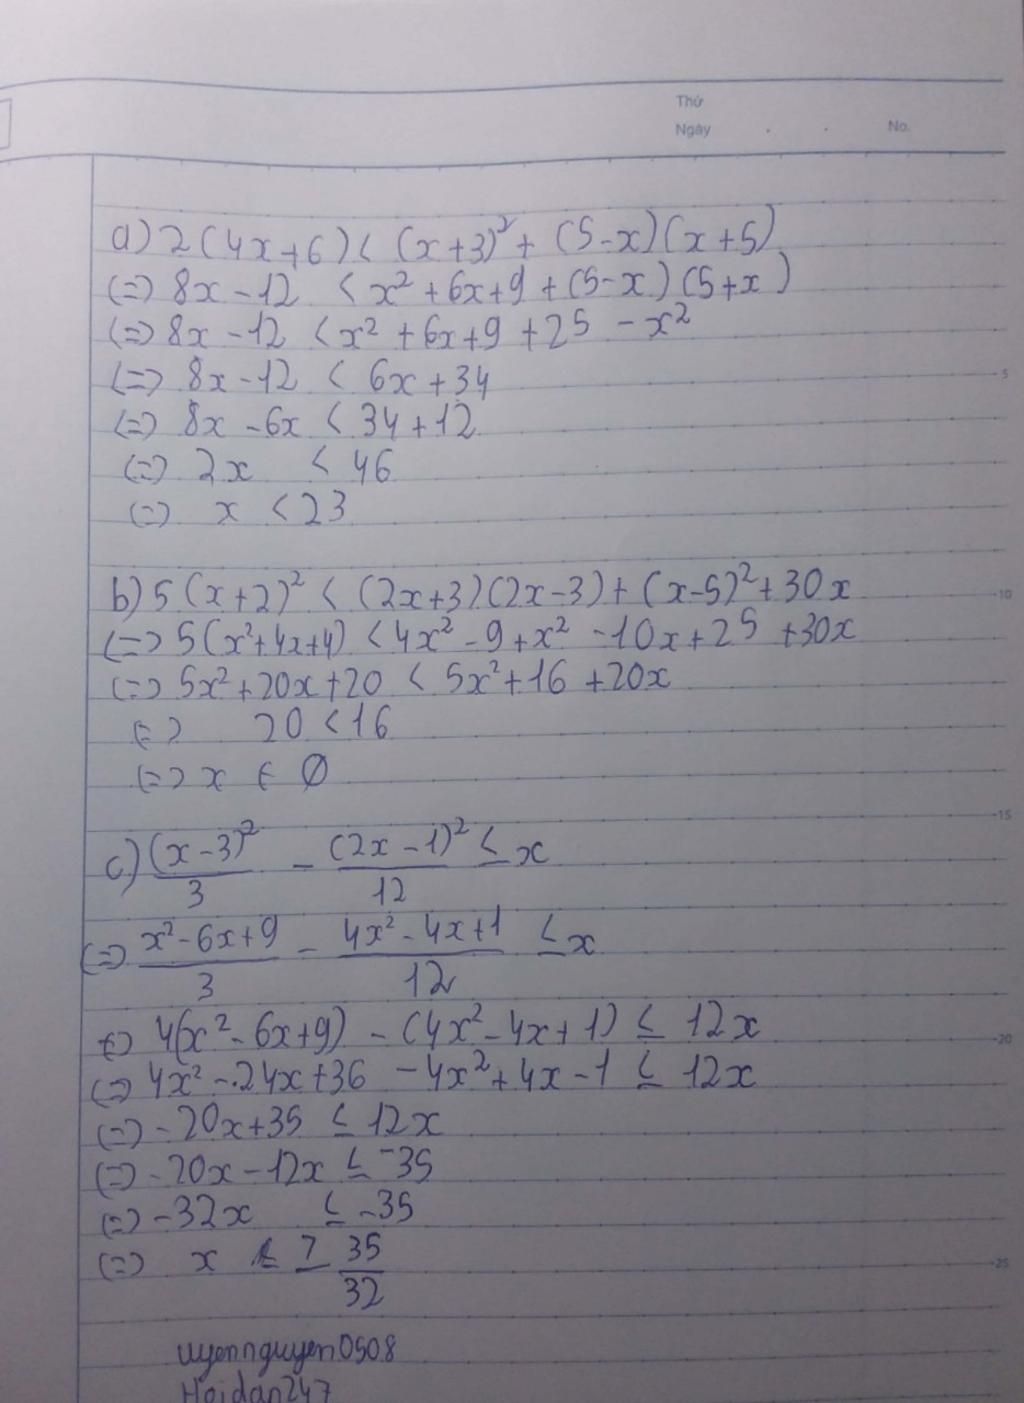 Thứ
Ngày . . No.
a) 2(4x+6) < (x+3)² + (5-x)(x+5)
(=) 8x - 12 < x² + 6x + 9 + (5-x)(5+x)
(=) 8x - 12 < x² + 6x + 9 + 25 - x²
(=) 8x - 12 < 6x + 34
5
(=) 8x - 6x < 34 + 12
(=) 2x < 46
(=) x < 23
b) 5(x+2)² < (2x+3)(2x-3) + (x-5)² + 30x
10
(=) 5(x²+4x+4) < 4x² - 9 + x² - 10x + 25 + 30x
(=) 5x² + 20x + 20 < 5x² + 16 + 20x
(=) 20 < 16
(=) x ∈ ∅
15
c) (x-3)²/3 - (2x-1)²/12 ≤ x
(=) x²-6x+9/3 - 4x²-4x+1/12 ≤ x
(=) 4(x²-6x+9) - (4x²-4x+1) ≤ 12x
20
(=) 4x² - 24x + 36 - 4x² + 4x - 1 ≤ 12x
(=) -20x + 35 ≤ 12x
(=) -20x - 12x ≤ -35
(=) -32x ≤ -35
(=) x ≥ 35/32
25
uyennguyen0508
Hoidap247